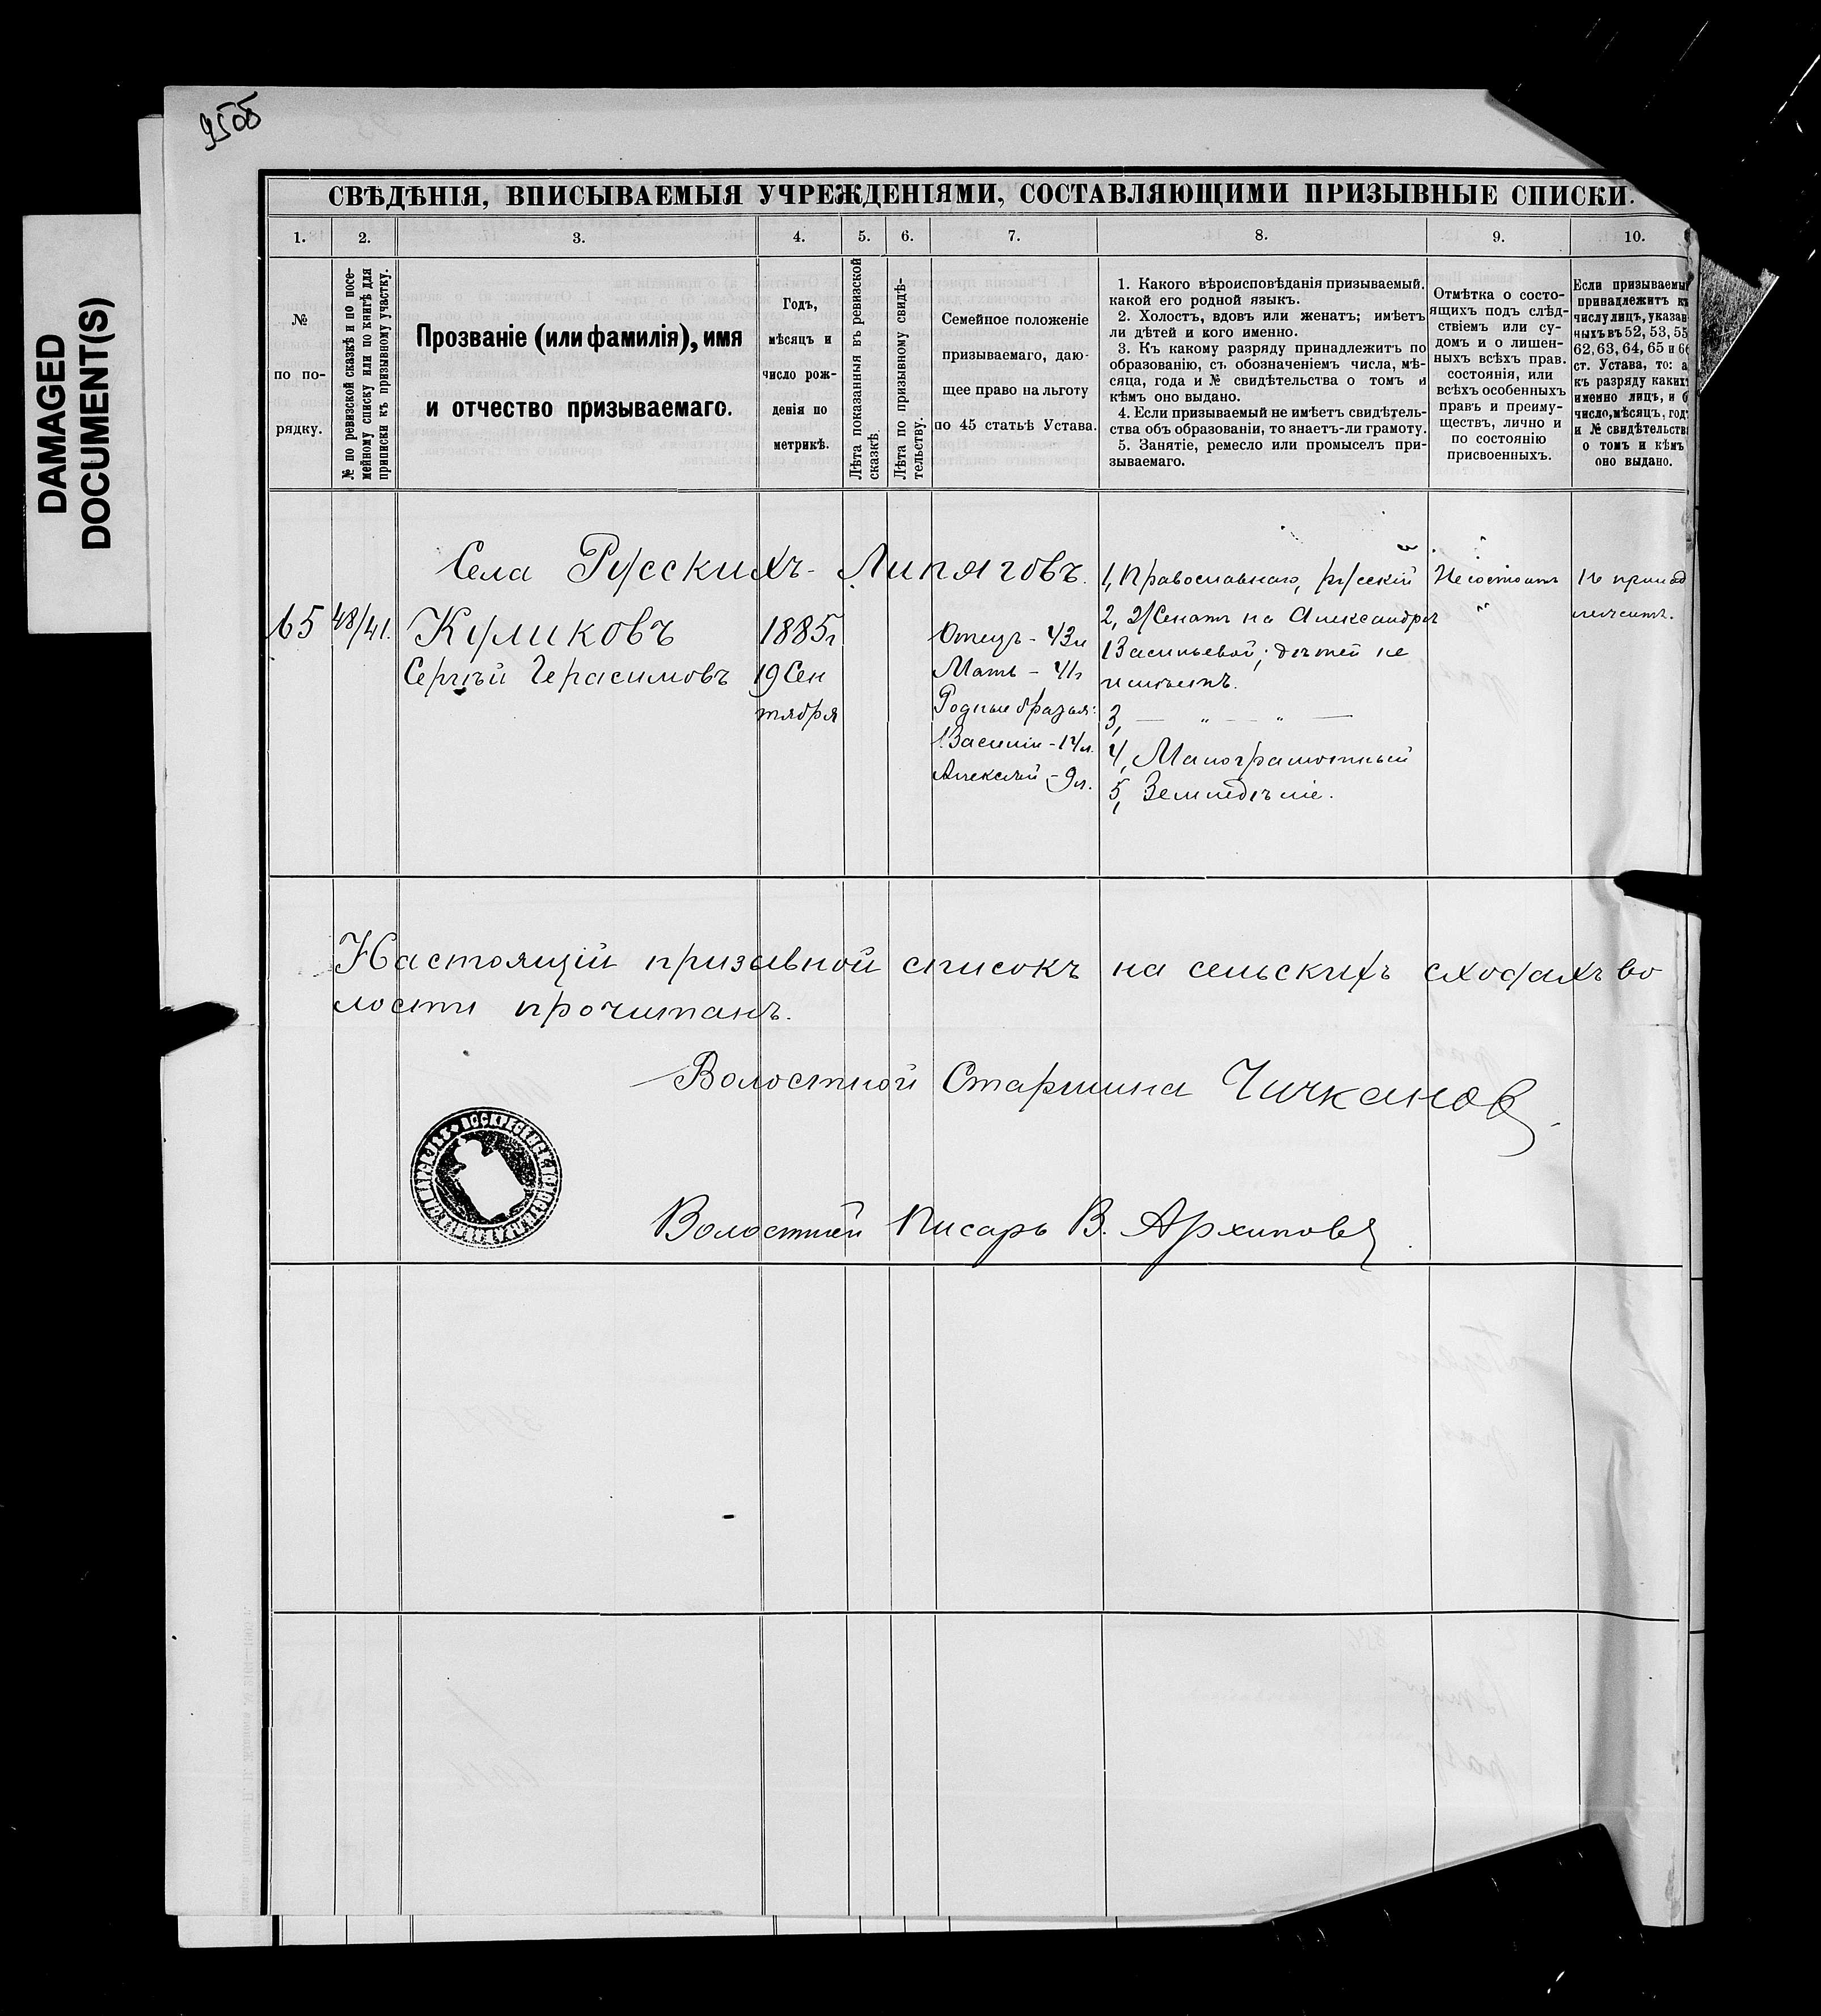 DAMAGED
DOCUMENT(S)
95об
СВѢДѢНІЯ, ВПИСЫВАЕМЫЯ УЧРЕЖДЕНІЯМИ, СОСТАВЛЯЮЩИМИ ПРИЗЫВНЫЕ СПИСКИ.
1. 2. 3. 4. 5. 6. 7. 8. 9. 10.
№
по по-
рядку.
№ по ревизской сказкѣ и по посе-
мейному списку или по книгѣ для
приписки къ призывному участку.
Прозваніе (или фамилія), имя
и отчество призываемаго.
Годъ,
мѣсяцъ и
число рож-
денія по
метрикѣ.
Лѣта показанныя въ ревизской
сказкѣ.
Лѣта по призывному свидѣ-
тельству.
Семейное положеніе
призываемаго, даю-
щее право на льготу
по 45 статьѣ Устава.
1. Какого вѣроисповѣданія призываемый.
какой его родной языкъ.
2. Холостъ, вдовъ или женатъ; имѣетъ
ли дѣтей и кого именно.
3. Къ какому разряду принадлежитъ по
образованію, съ обозначеніемъ числа, мѣ-
сяца, года и № свидѣтельства о томъ и
кѣмъ оно выдано.
4. Если призываемый не имѣетъ свидѣтель-
ства объ образованіи, то знаетъ-ли грамоту.
5. Занятіе, ремесло или промыселъ при-
зываемаго.
Отмѣтка о состо-
ящихъ подъ слѣд-
ствіемъ или су-
домъ и о лишен-
ныхъ всѣхъ прав.
состоянія, или
всѣхъ особенныхъ
правъ и преиму-
ществъ, лично и
по состоянію
присвоенныхъ.
Если призываемый
принадлежитъ къ
числу лицъ, указан
ныхъ въ 52, 53, 55
62, 63, 64, 65 и 66
ст. Устава, то: а
къ разряду какихъ
именно лицъ, и б
число, мѣсяцъ, годъ
и № свидѣтельства
о томъ и кѣмъ
оно выдано.
Села Русскихъ-Липяговъ.
65 48/41.
Куликовъ
Сергѣй Герасимовъ
1885г
19 Сен
тября
Отецъ - 43л
Мать - 41г
Родные братья:
Василій - 14л.
Алексѣй - 9л.
1, Православнаго, русскій
2, Женатъ на Александрѣ
Васильевой; дѣтей не
имѣетъ.
3, — " — " —
4, Малограмотный
5, Земледѣліе.
Не состоитъ
Не принад
лежитъ.
Настоящій призывной списокъ на сельскихъ сходахъ во
лости прочитанъ.
Волостной Старшина Чичканов
Волостной Писарь В. Архиповъ